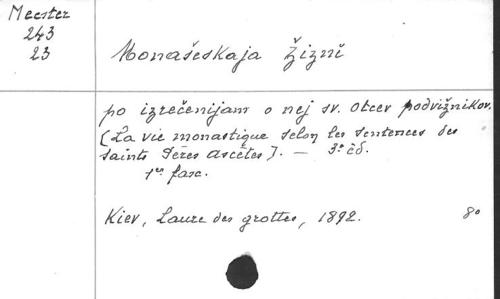 Meester
243
23
Monašeskaja Žizni
po izrečenijam o nej sv. otcev podvižnikov.
(La vie monastique selon les sentences des
saints Pères ascètes). — 3e éd.
1er fasc.
Kiev, Laure des grottes, 1892. 8o